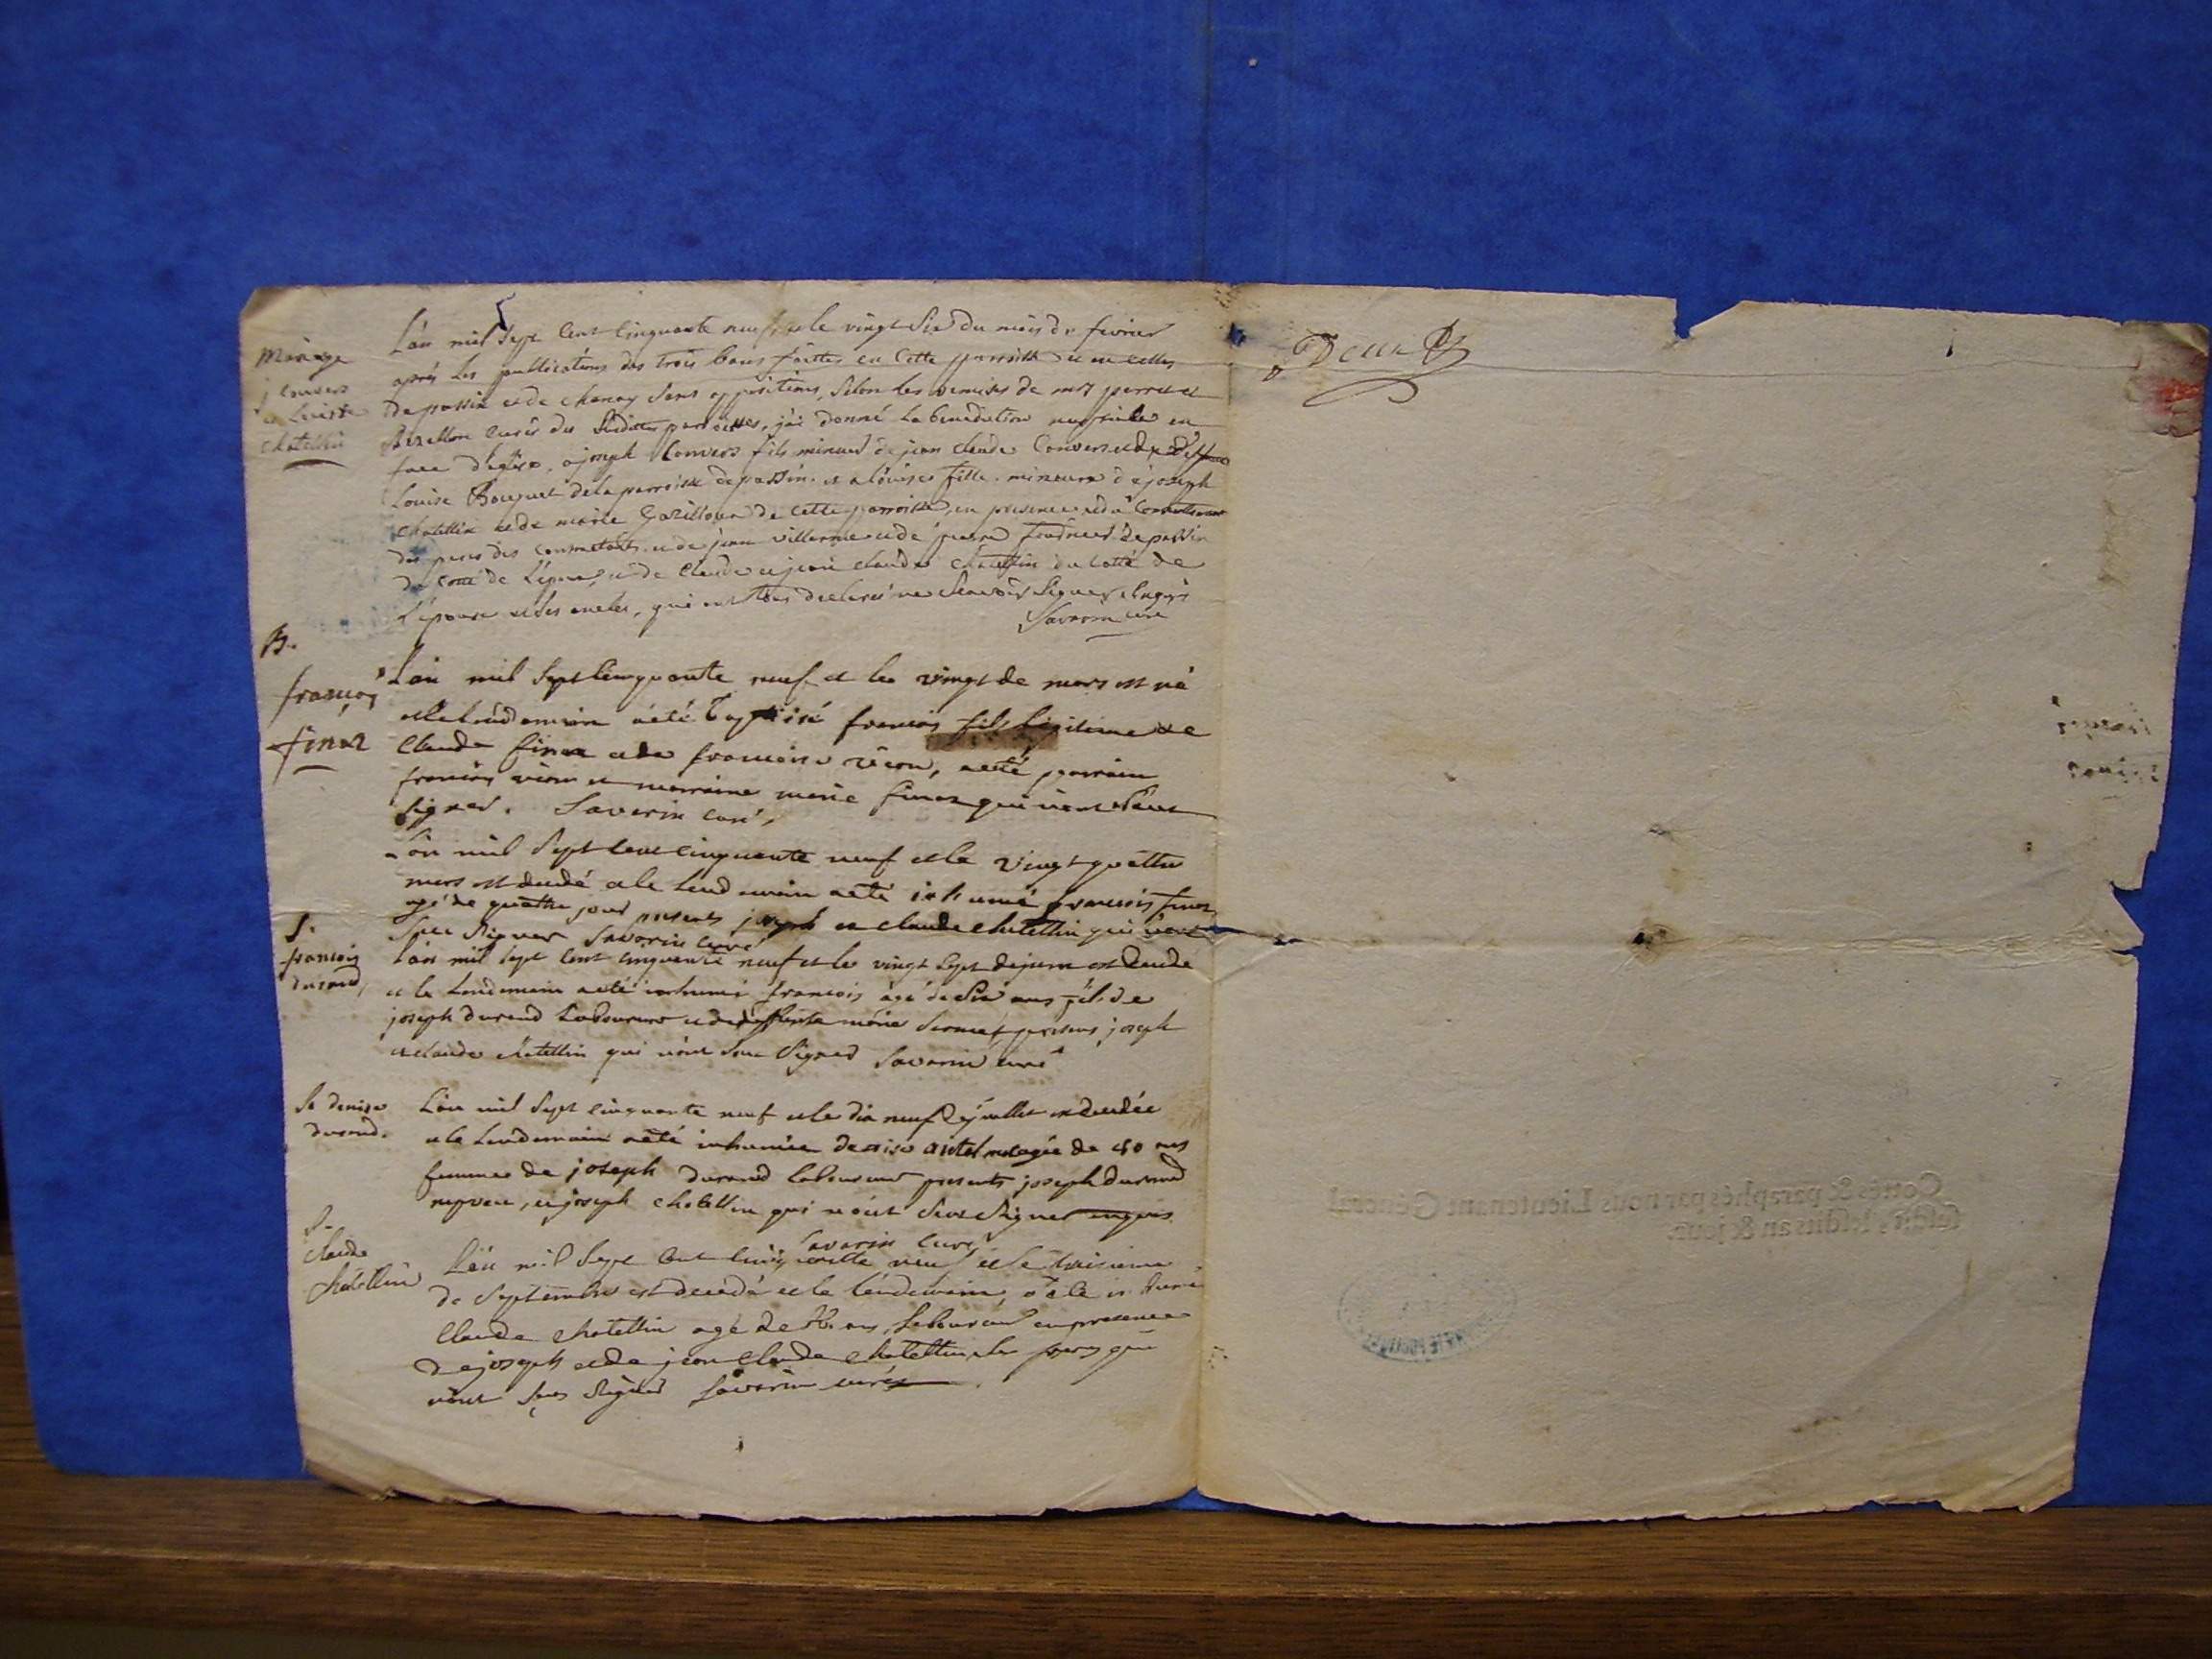 L'an mil sept cent cinquante neuf et le vingt six du mois de fevrier
mariage
après les publications des trois bans faittes en cette parroisse et en celles
j convers
de passin et de chanay sans oppositions, selon les remises de mrs perret et
et Louise
curés des susdittes parroisses, j'ai donné la benediction nuptiale en
chatellin
face d'eglise, a joseph Convers fils mineur de jean claude Convers et de
Louise Bouquet de la parroisse de passin. et a louise fille mineure de joseph
chatellin et de marie de cette parroisse, en presence et du consentement
des peres des contractants. et de jean et de pierre de passin
du cotté de l'epoux, et de Claude et jean claude chatellin du cotté de
l'épouse et ses oncles, qui ont tous declarés ne scavoir signer enquis
Savarin curé
B.
françois
finaz
L'an mil sept cinquante neuf et le vingt de mars est né
et le lendemain a été baptisé francois fils legitime de
Claude finaz et de francoise, a eté parrain
francois et marraine marie finaz qui n'ont sceut
signer. Savarin curé,
L'an mil sept cent cinquante neuf et le vingt quattre
mars est decedé et le lendemain a eté inhumé francois finaz
agé de quattre jours presents joseph et claude chatellin qui n'ont
sceu signer Savarin curé
S.
francois
durand,
L'an mil sept cent cinquante neuf et le vingt sept de juin est decedé
et le lendemain a eté inhumé francois agé de six ans fils de
joseph durand Laboureur et de deffunte marie presens joseph
et claude chatellin qui n'ont sceu signer Savarin curé
S. denise
durand.
L'an mil sept cinquante neuf et le dix neuf de juillet est decedée
et le lendemain a eté inhumée denise agée de 40 ans
femme de joseph durand laboureur presents joseph durand
nepveu, et joseph chatellin qui n'ont sceu signer enquis
Savarin curé
S.
claude
chatellin
L'an mil sept cent cinquante neuf et le troisieme
de septembre est decedé et le lendemain a eté inhumé
Claude chatellin agé de ans, laboureur en presence
de joseph et de jean claude chatellin ses freres qui
n'ont sceu signer Savarin curé
Deux
Cottés & paraphés par nous Lieutenant General
susdit, lesdits an & jour.